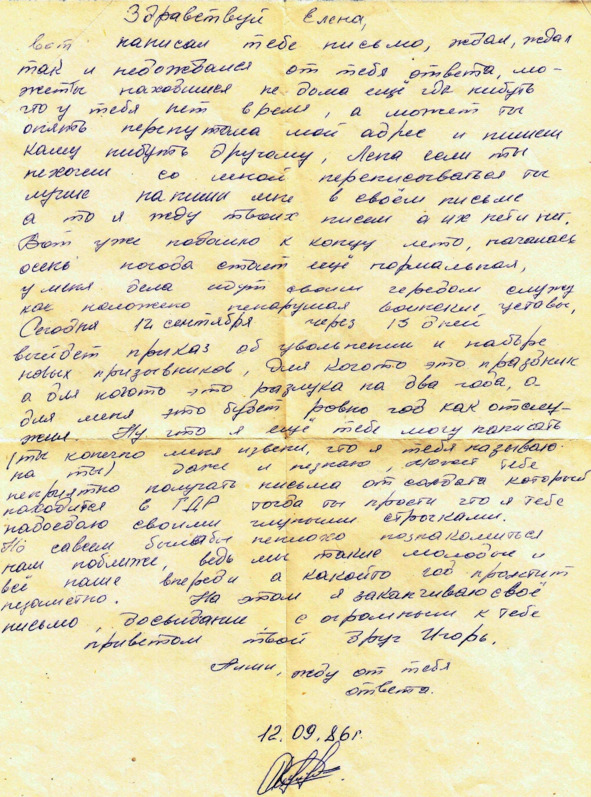 Здравствуй Елена,
вот написал тебе письмо, ждал, ждал
так и недождался от тебя ответа, мо-
жеты находишся не дома ещё где нибуть
что у тебя нет время, а может ты
опять перепутала мой адрес и пишеш
каму нибуть другому, Лена если ты
нехочеш со мной переписоваться ты
лучше напиши мне в своём письме
а то я жду твоих писем а их нет и нет.
Вот уже подошло к концу лето, началась
осень погода стоит ещё нормальная,
у меня дела идут своим чередом служу
как положено ненарушая воинские уставы.
Сегодня 12 сентября через 13 дней
выйдет приказ об увольнении и наборе
новых призывников, для когото это праздник
а для когото это разлука на два года, а
для меня это будет ровно год как отслу-
жил. Ну что я ещё тебе могу написать
(ты конечно меня извени, что я тебя называю
на ты) даже и незнаю, может тебе
неприятно получать письма от солдата который
находится в ГДР тогда ты прости что я тебе
надоедаю своими глупыми строчками.
Но савсем былабы неплохо познакомиться
нам поближе, ведь мы такие молодые и
всё наше впереди а какойто год пролетит
незаметно. На этом я заканчиваю своё
письмо, Досвидание, с огромным к тебе
приветом твой друг Игорь.
жду от тебя
ответа.
12.09.86г.